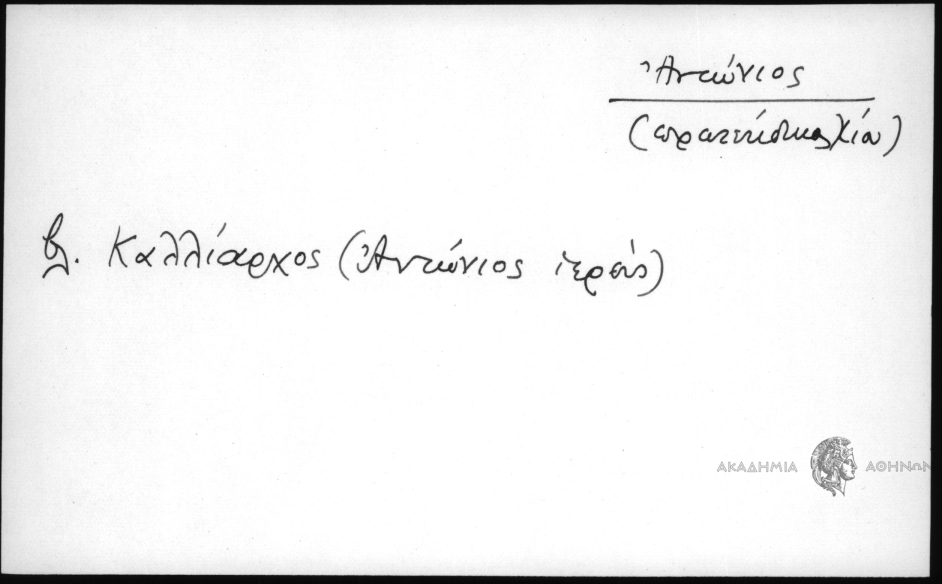 Ἀντώνιος
(πρωτέκδικος Χίου)
βλ. Καλλίαρχος (Ἀντώνιος ἱερεύς)
ΑΚΑΔΗΜΙΑ ΑΘΗΝΩΝ